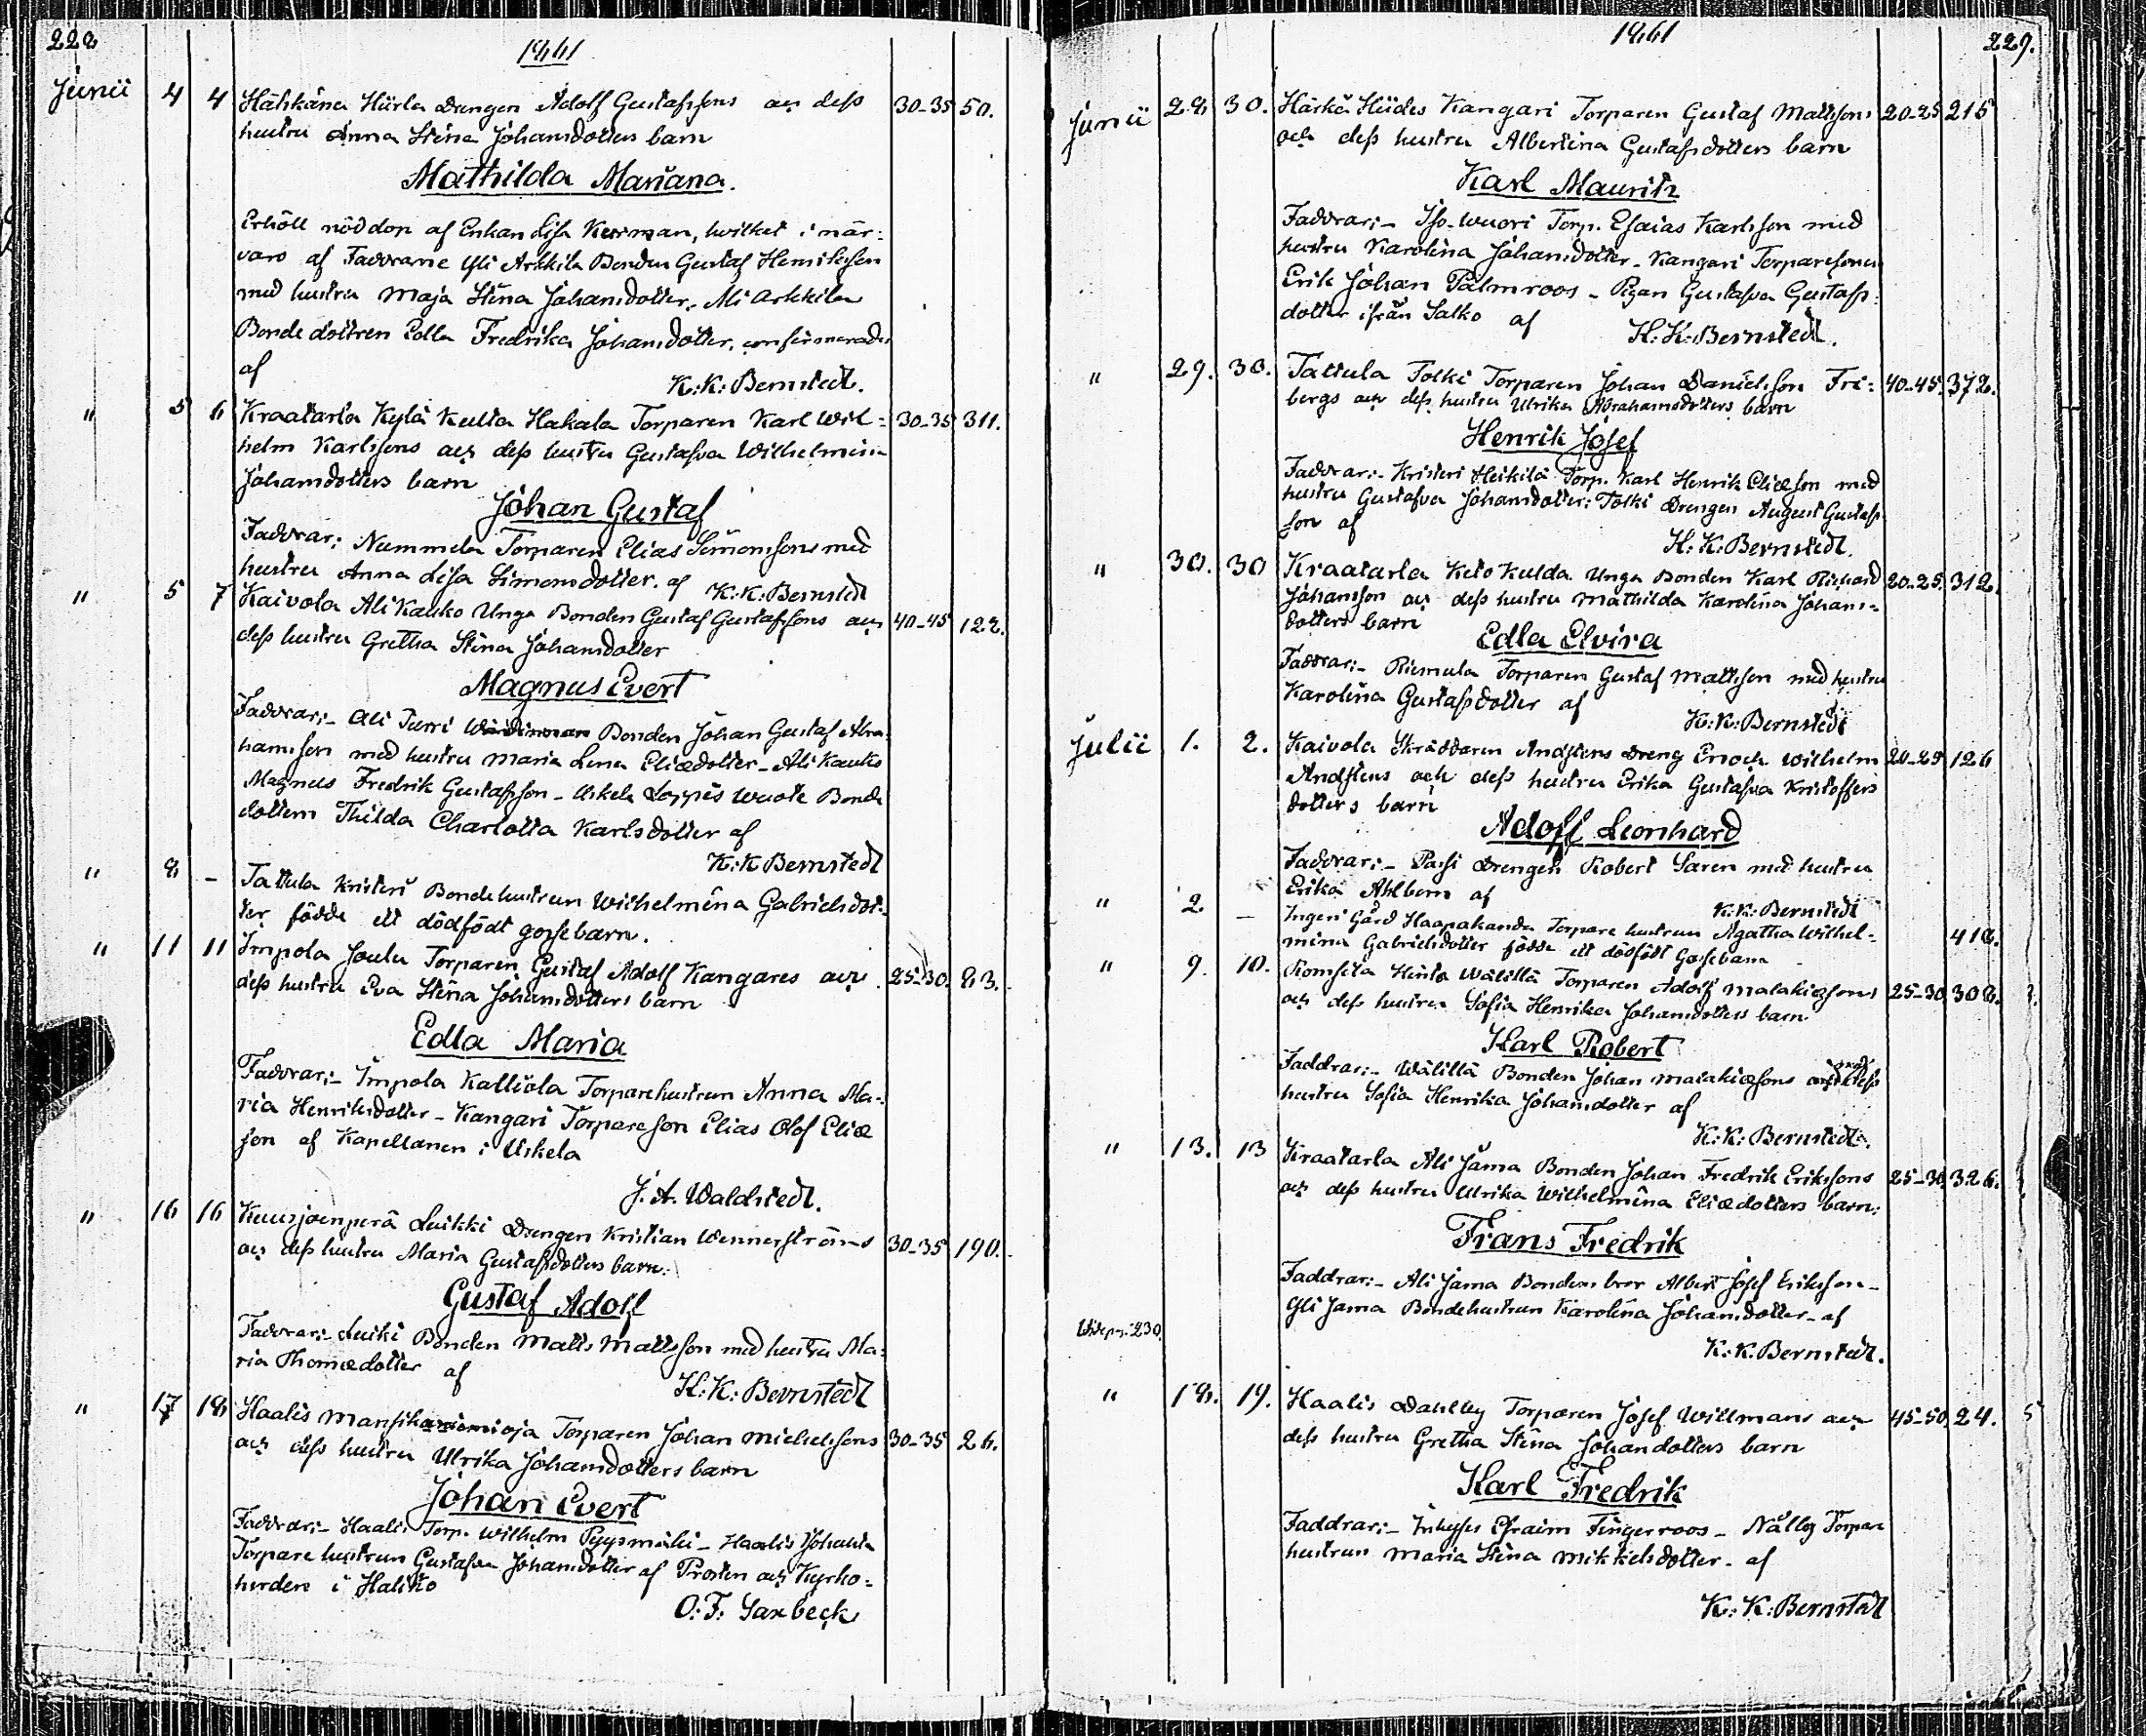 228 1861
Junii 4 4 Hähkänä Hiirla Drengen Adolf Gustafssons och dess 30-35 50.
hustru Anna Stina Johansdotters barn
Mathilda Mariana.
Erhöll nöddop af Enkan Lisa Kurman, hvilket i när-
varo af Faddrarne Yli Arkkila Bonden Gustaf Henriksson
med hustru Maja Stina Johansdotter, Ali Arkkila
Bonde dottren Edla Fredrika Johansdotter, confirmerades
af
K:K: Bernstedt.
" 5 6 Kraatarla Kylä Kulta Hakala Torparen Karl Wil- 30-35 311.
helm Karlssons och dess hustru Gustafva Wilhelmina
Johansdotters barn
Johan Gustaf
Faddrar: Nummela Torparen Elias Simonssons med
hustru Anna Lisa Simonsdotter. af K:K: Bernstedt
" 5 7 Kaivola Ali Kauko Unga Bonden Gustaf Gustafssons och 40-45 122.
dess hustru Gretha Stina Johansdotter
Magnus Evert
Faddrar:- Ali Turri Bonden Johan Gustaf Abra-
hamsson med hustru Maria Lena Eliædotter - Ali Kauko
Magnus Fredrik Gustafsson - Uskela Loppis Wuote Bonde
dottern Thilda Charlotta Karlsdotter af
K:K Bernstedt
" 8 - Tattula Kristeri Bondehustrun Wilhelmina Gabrielsdot-
ter födde ett dödfödt gossebarn.
" 11 11 Impola Joulu Torparen Gustaf Adolf Kangares och 25-30. 83.
dess hustru Eva Stina Johansdotters barn
Edla Maria
Faddrar:- Impola Kalliola Torparehustrun Anna Ma-
ria Henriksdotter - Kangari Torpareson Elias Olof Eliæ
son af Kapellanen i Uskela
J. A. Waldstedt.
" 16 16 Kuusjoenperä Luikki Drengen Kristian Wennerströms 30-35 190.
och dess hustru Maria Gustafsdotters barn:
Gustaf Adolf
Faddrar:- Luiki Bonden Matts Mattsson med hustru Ma-
ria Thomædotter af
K:K: Bernstedt
" 17 18 Haalis Torparen Johan Michelssons 30-35 26.
och dess hustru Ulrika Johansdotters barn
Johan Evert
Faddrar:- Haalis Torp. Wilhelm Pyysmäki - Haalis
Torpare hustrun Gustafva Johansdotter af Prosten och Kyrko-
herden i Halikko
O: F: Saxbeck
1861 229.
Junii 28 30. Härkä Hiides Kangari Torparen Gustaf Mattssons 20-25 215
och dess hustru Albertina Gustafsdotters barn
Karl Mauritz
Faddrar:- Iso-wuori Torp. Esaias Karlsson med
hustru Karolina Johansdotter - Kangari Torparesonen
Erik Johan Palmroos - Pigan Gustafva Gustafs-
dotter ifrån Salko af K:K:Bernstedt.
" 29. 30. Tattula Tolki Torparen Johan Danielsson Fri- 40-45. 372.
bergs och dess hustru Ulrika Abrahamsdotters barn
Henrik Josef
Faddrar:- Kristeri Heikilä Torp. Karl Henrik Eliæson med
hustru Gustafva Johansdotter: Tolki Drengen August Gustafs-
son af
K: K: Bernstedt.
" 30. 30 Kraatarla Keto Kulda Unga Bonden Karl Richard 20-25. 312.
Johansson och dess hustru Mathilda Karolina Johans-
dotters barn
Edla Elvira
Faddrar:- Riemula Torparen Gustaf Mattsson med hustru
Karolina Gustafsdotter af
K:K: Bernstedt
Julii 1. 2. Kaivola Skräddaren Andstens Dreng Enoch Wilhelm 20-25 126
Andstens och dess hustru Erika Gustafva Kristoffers
dotters barn
Adolf Leonhard
Faddrar:- Passi Drengen Robert Saren med hustru
Erika Ahlbom af
K:K: Bernstedt
" 2. - Ingeri Gård Haapakanda Torpare hustrun Agatha Wilhel- 418.
mina Gabrielsdotter födde ett dödfödt Gossebarn
" 9. 10. Romsila Hinta Wälillä Torparen Adolf Malakiæsons 25-30 308.
och dess hustru Sofia Henrika Johansdotters barn
Karl Robert
Faddrar:- Wälillä Bonden Johan Malakiæsons med dess
hustru Sofia Henrika Johansdotter af
K:K: Bernstedt.
" 13. 13 Kraatarla Ali Jama Bonden Johan Fredrik Erikssons 25-30. 326.
och dess hustru Ulrika Wilhelmina Eliædotters barn:
Frans Fredrik
Faddrar:- Ali Jama Bondens bror Albert Josef Eriksson -
Yli Jama Bondehustrun Karolina Johansdotter - af
K:K. Bernstedt.
Wide pag: 230.
" 18. 19. Haalis Dahlby Torparen Josef Willmans och 45-50. 24. 5
dess hustru Gretha Stina Johandotters barn
Karl Fredrik
Faddrar:- Inhyses Efraim Fingerroos - Nålby Torpare
hustrun Maria Stina Mikkelsdotter - af
K: K: Bernstedt